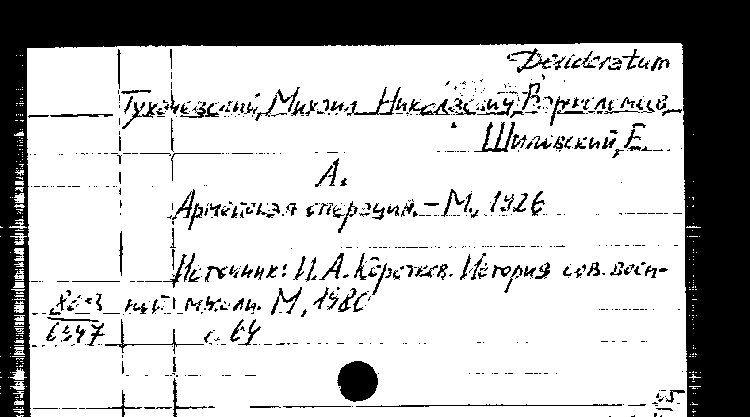 Desideratum
Тухачевский, Михаил Николаевич, Варфоломеев,
Шиловский, Е.
А.
Армейская операция. – М., 1926
Источник: И. А. Коротков. История сов. воен-
ной мысли. М, 1980
с. 64